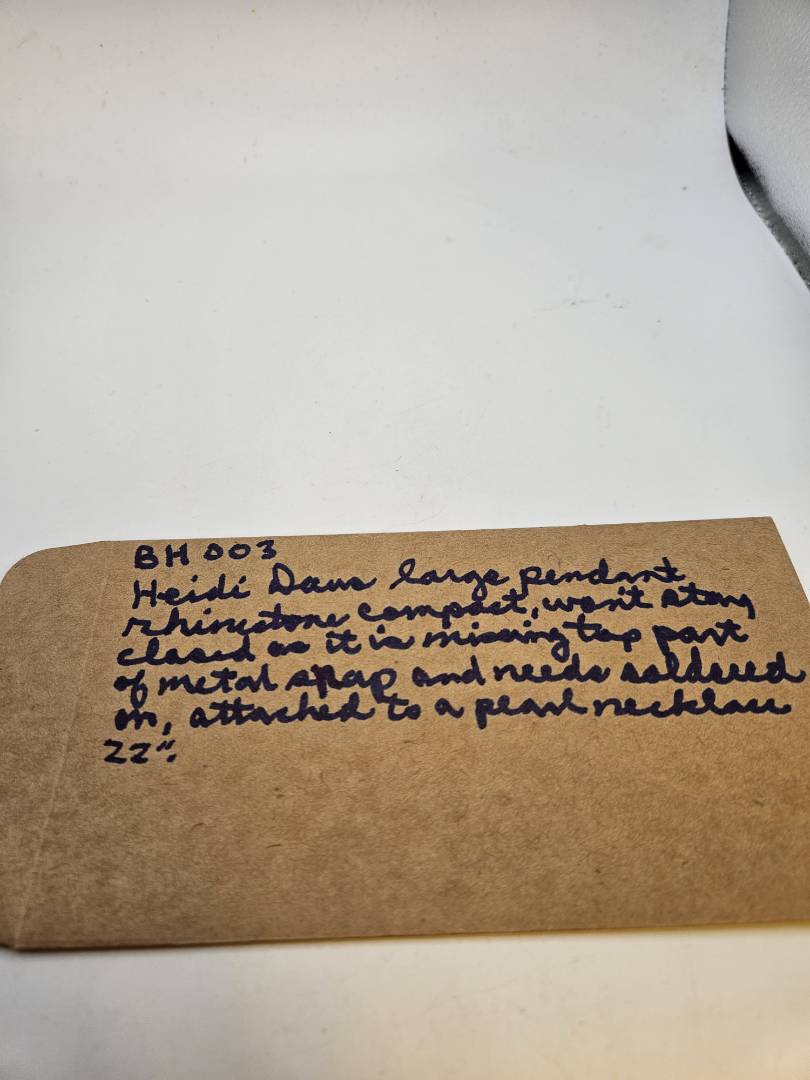 BH 003
Heidi Daus large pendant
rhinestone compact, won't stay
closed as it is missing top part
of metal snap and needs soldered
on, attached to a pearl necklace
22".